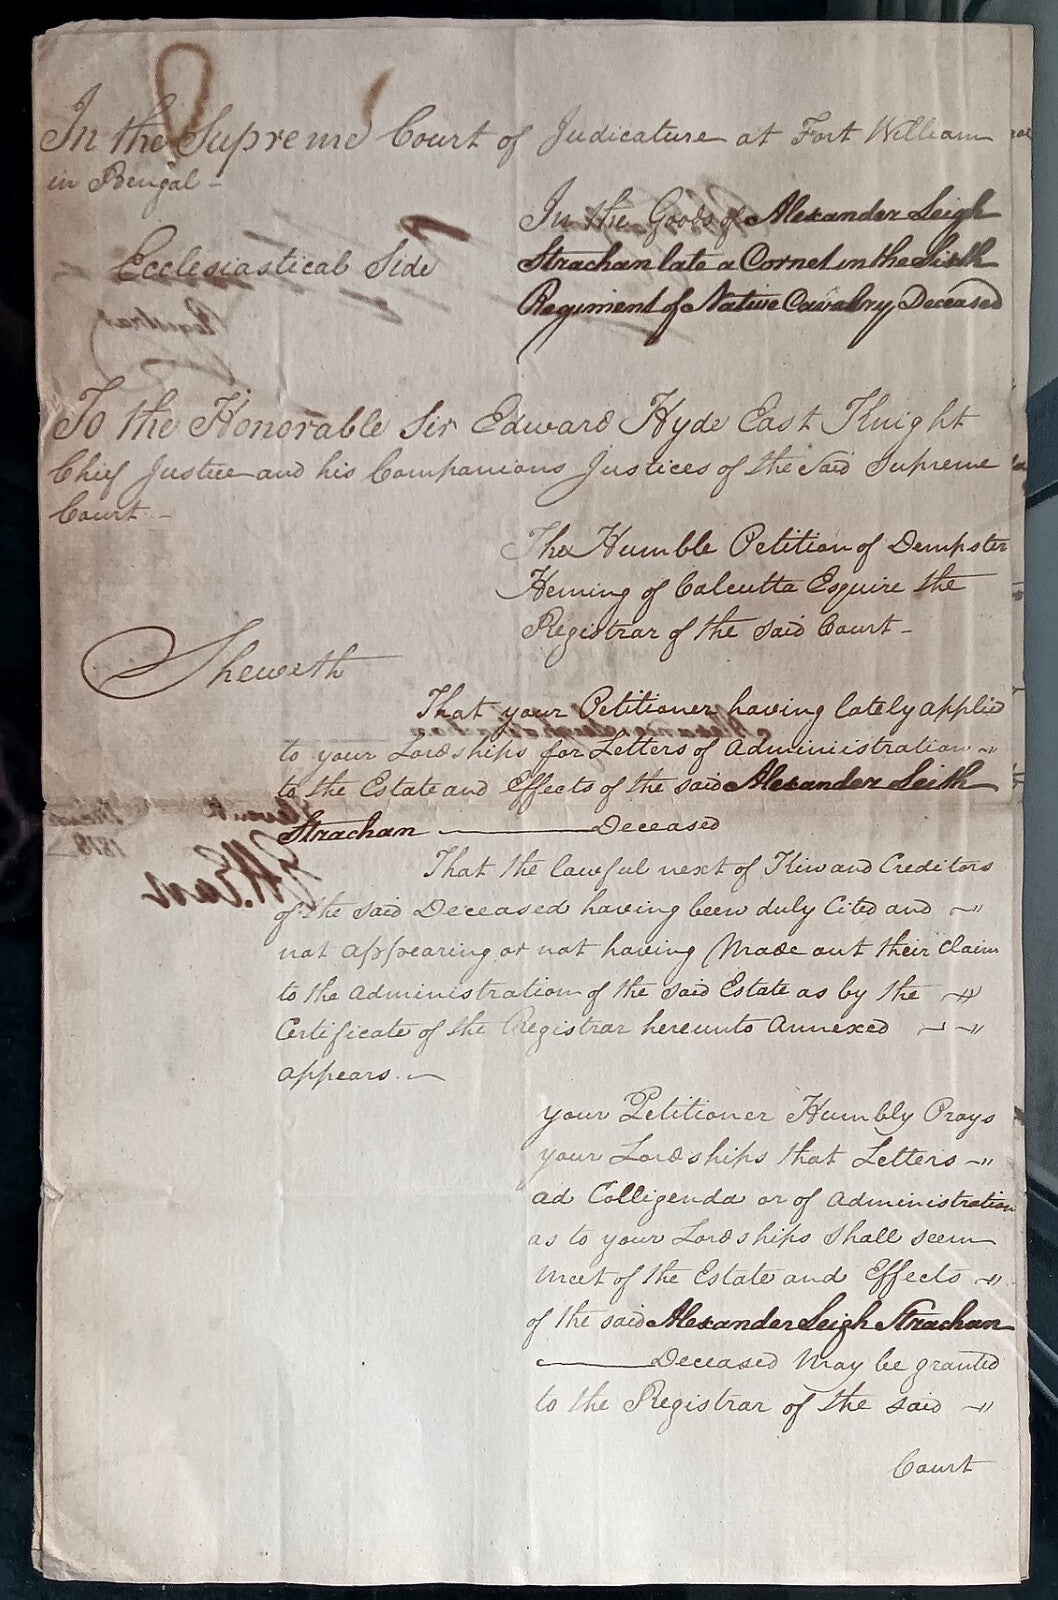 In the Supreme Court of Judicature at Fort William
in Bengal -
In the Goods of Alexander Leigh
Ecclesiastical Side
Strachan late a Cornet in the Sixth
Regiment of Native Cavalry Deceased
To the Honorable Sir Edward Hyde East Knight
Chief Justice and his Companions Justices of the Said Supreme
Court -
The Humble Petition of Dempster
Heming of Calcutta Esquire the
Registrar of the said Court -
Sheweth
That your Petitioner having lately applied
to your Lordships for Letters of Administration
to the Estate and Effects of the said Alexander Leith
Strachan Deceased
That the lawful next of Kin and Creditors
of the said Deceased having been duly Cited and
not appearing or not having Made out their Claim
to the administration of the said Estate as by the
Certificate of the Registrar hereunto Annexed
appears. -
your Petitioner Humbly Prays
your Lordships that Letters
ad Colligenda or of administration
as to your Lordships Shall seem
Meet of the Estate and Effects
of the said Alexander Leigh Strachan
Deceased May be granted
to the Registrar of the said
Court